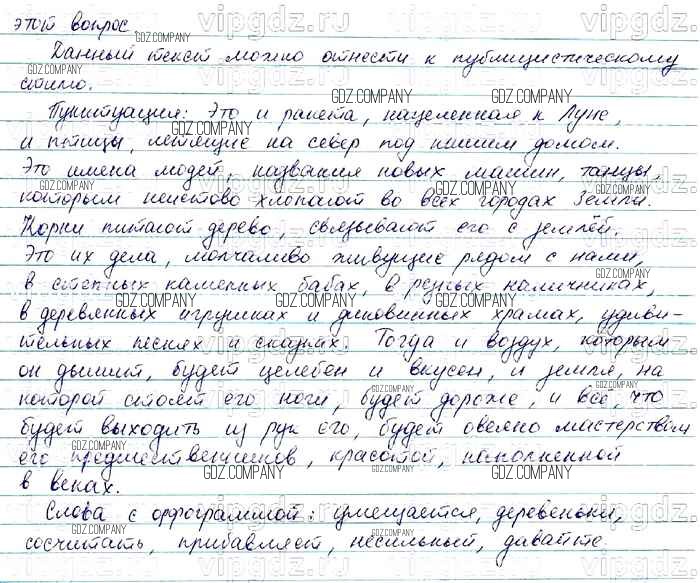 этот вопрос.
Данный текст можно отнести к публицистическому
стилю.
Пунктуация: Это и ракета, нацеленная к Луне,
и птицы, летящие на север под нашим домом.
Это имена людей, названия новых машин, танцы,
которым неистово хлопают во всех городах Земли.
Корни питают дерево, связывают его с землёй.
Это их дела, молчаливо живущие рядом с нами,
в степных каменных бабах, в резных наличниках,
в деревянных игрушках и диковинных храмах, удиви-
тельных песнях и сказках. Тогда и воздух, которым
он дышит, будет целебен и вкусен, и земля, на
которой стоят его ноги, будет дороже, и всё, что
будет выходить из рук его, будет овеяно мастерством
его предшественников, красотой, накопленной
в веках.
Слова с орфограммой: умещается, деревеньки,
сосчитать, прибавляет, несильный, давайте.